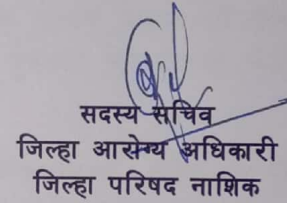 सदस्य सचिव
जिल्हा आरोग्य अधिकारी
जिल्हा परिषद नाशिक